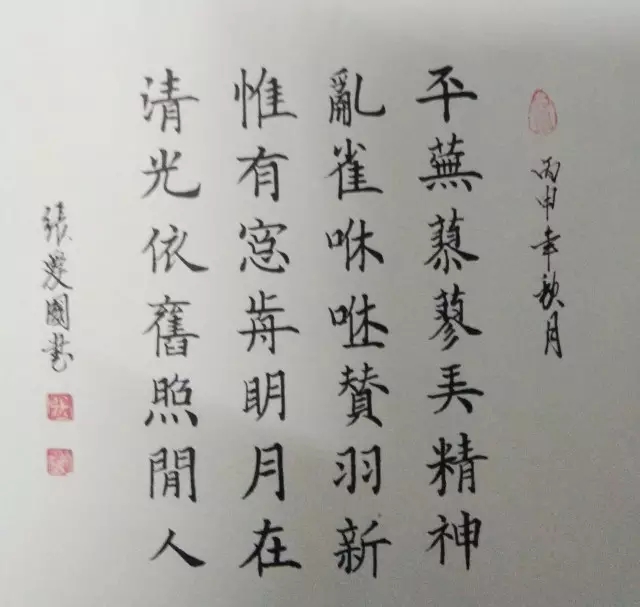 丙申年秋月
平蕪藜蓼美精神
亂雀咻贊羽新
惟有窓歬眀月在
清光依舊照閒人
張愛國書